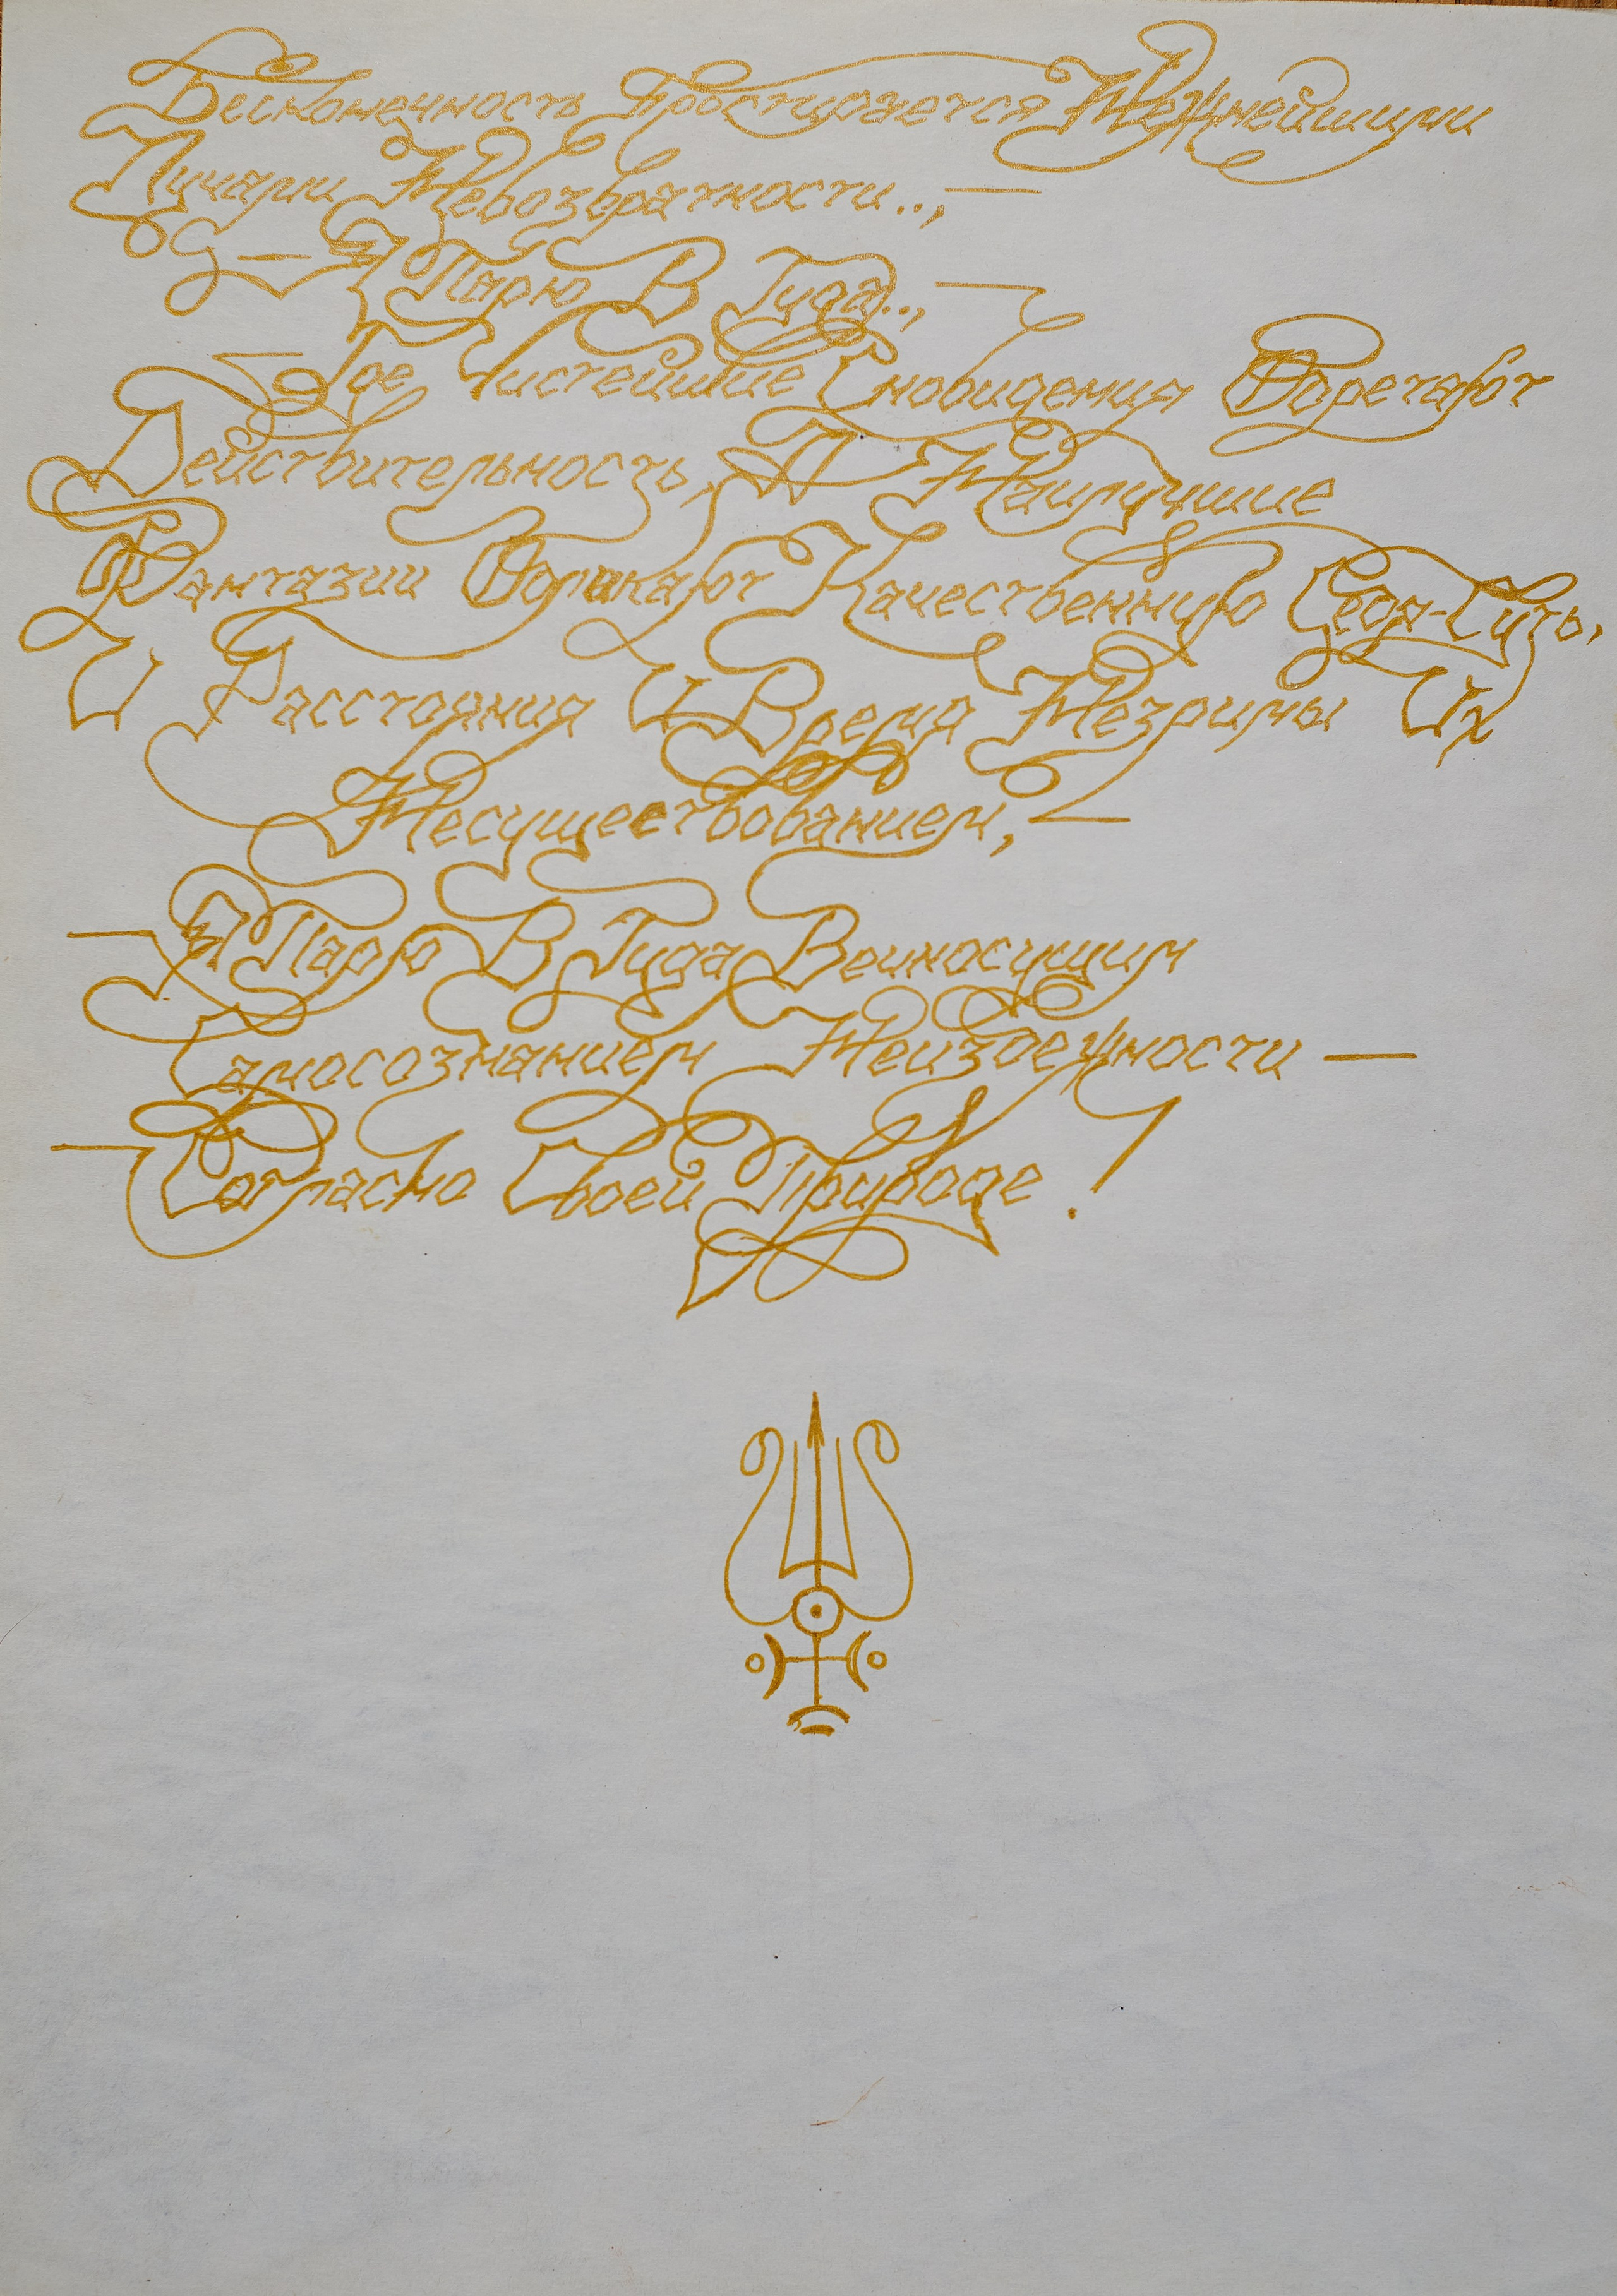 Бесконечность Простирается Нежнейшими
Лучами Невозвратности..,—
— Я Парю В Туда..,—
— Где Чистейшие Сновидения Обретают
Действительность, А Наилучшие
Фантазии Облекают Качественную Себя-Суть,
И Расстояния И Время Незримы Их
Несуществованием,—
— Я Парю В Туда Вечносущим
Самосознанием Неизбежности —
— Согласно Своей Природе!